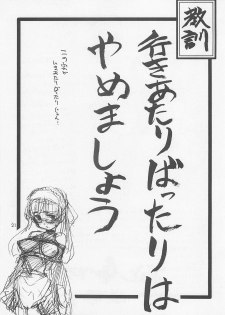 教訓
行きあたりばったりは
やめましょう